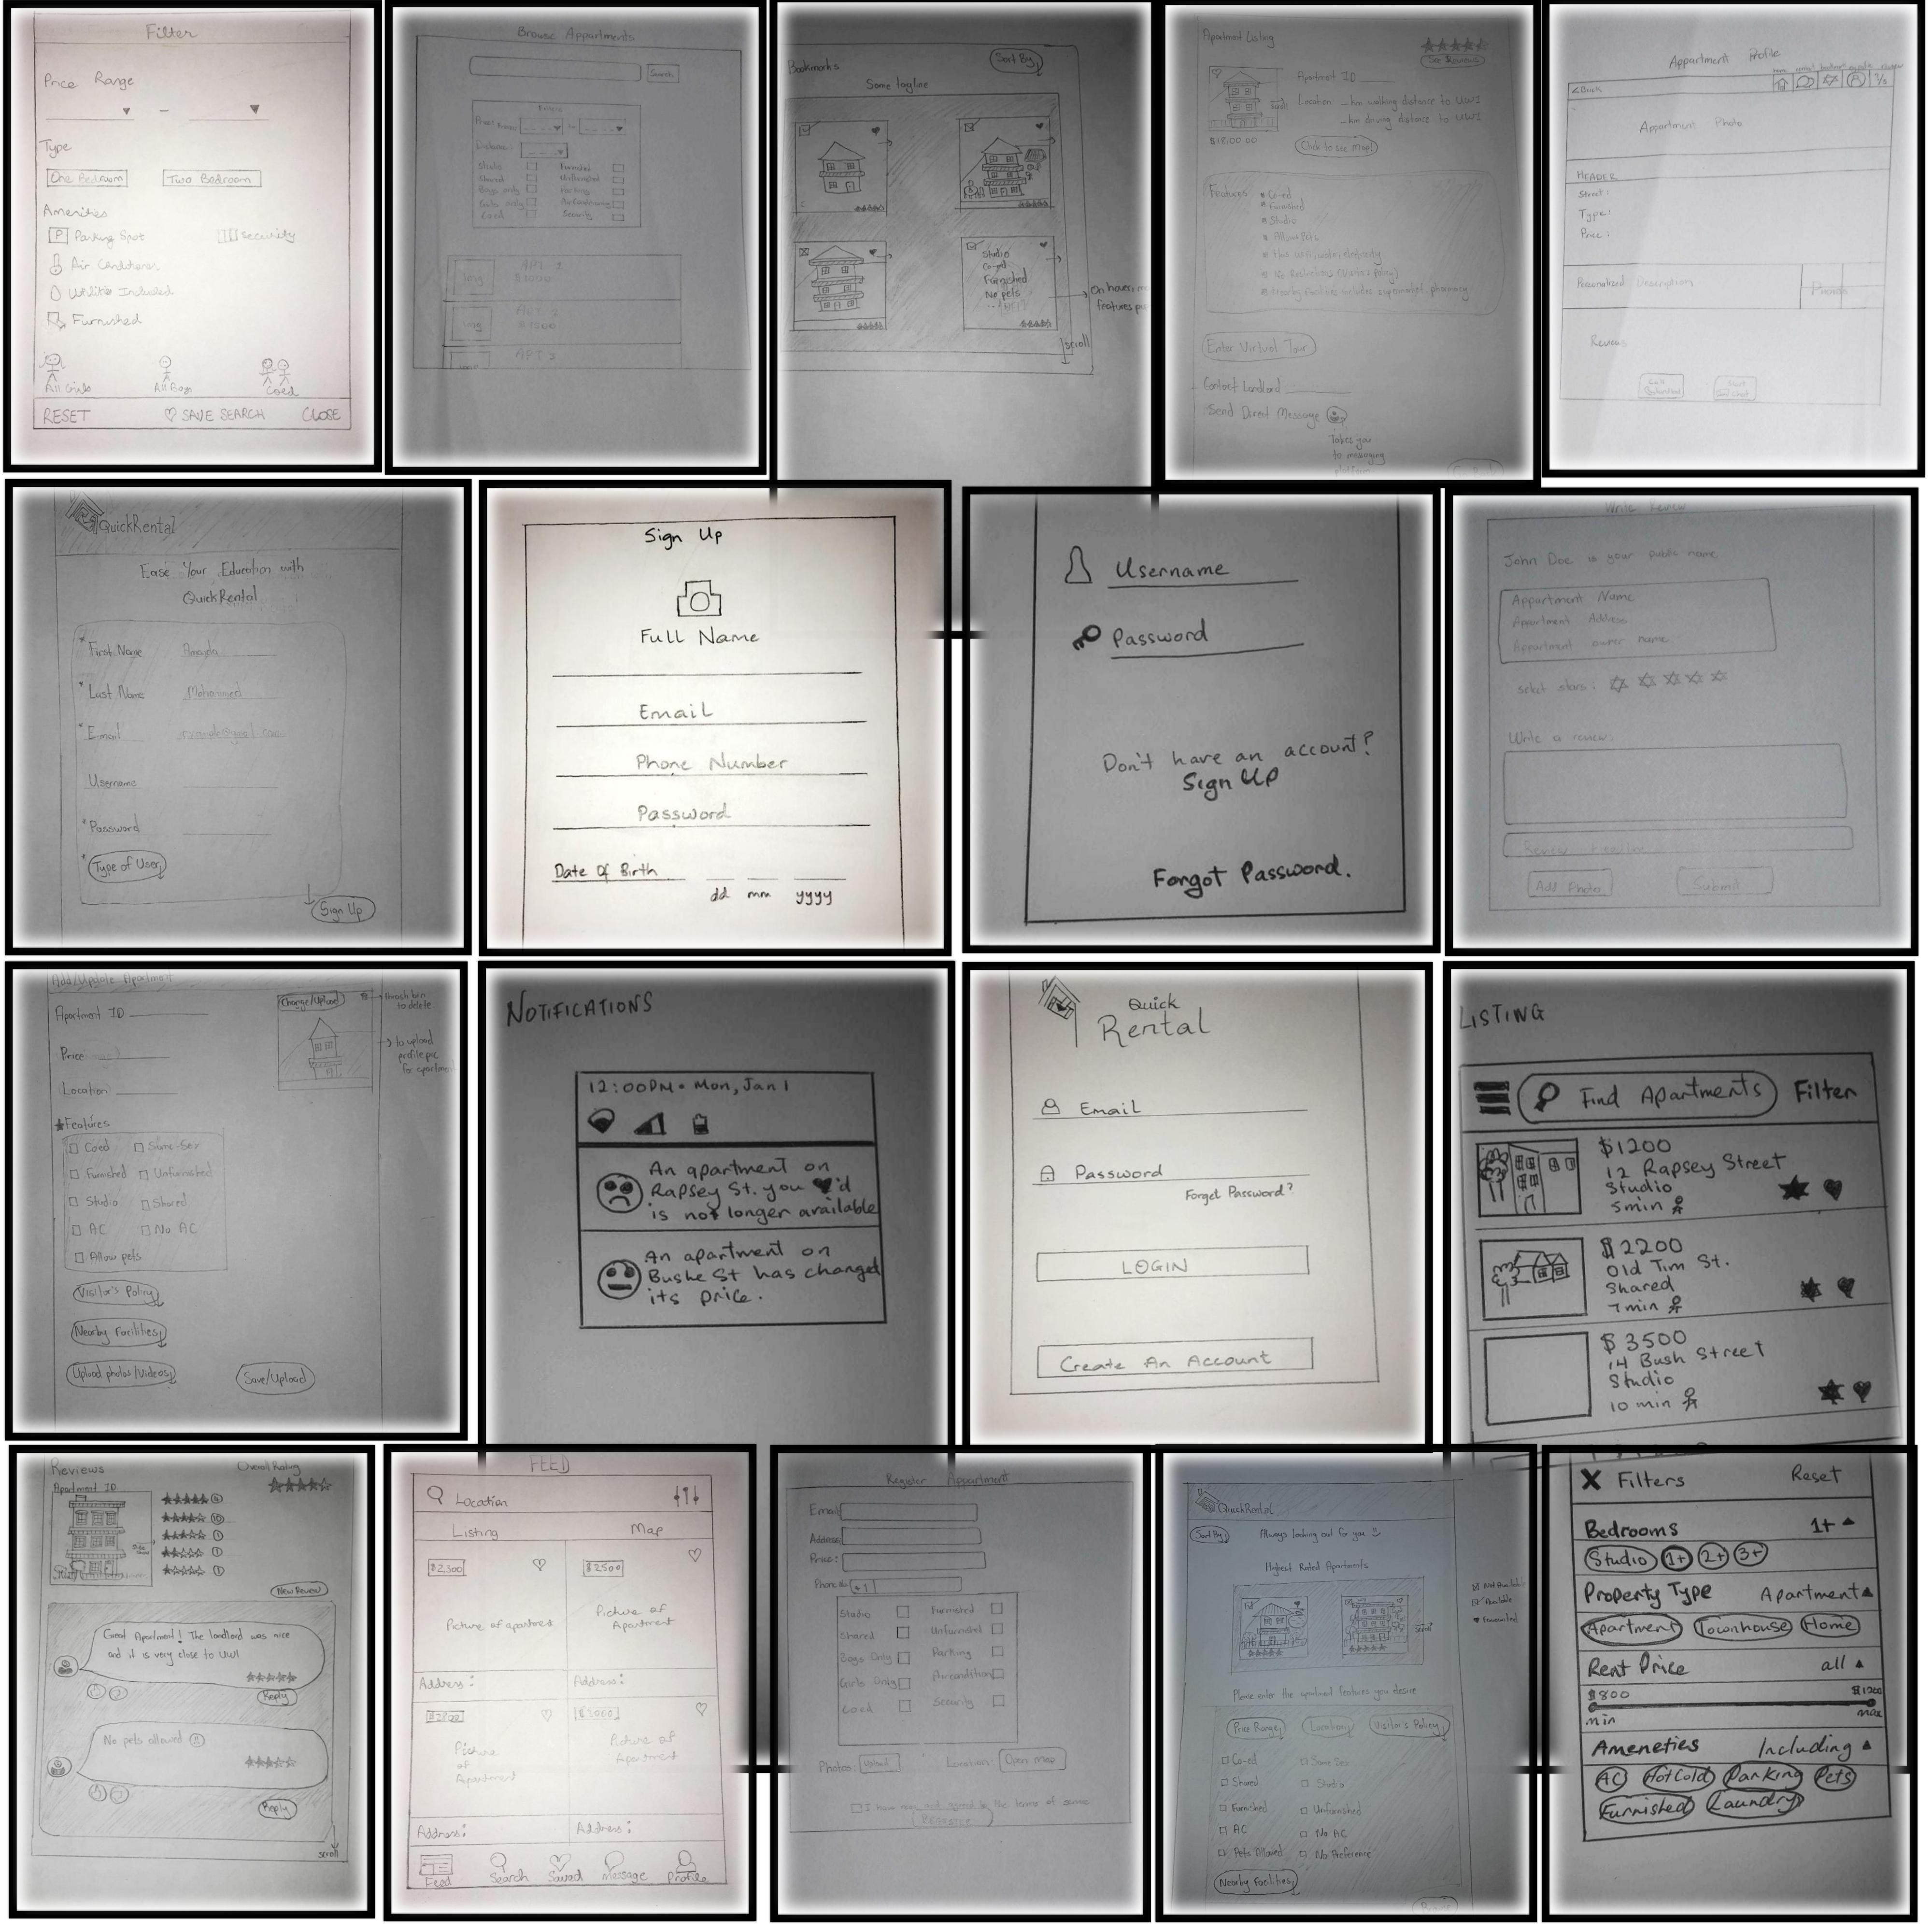 Filter
Price Range
Type
One Bedroom Two Bedroom
Amenities
P Parking Spot Security
Air Conditioner
Utilities Included
Furnished
All Girls All Boys Coed
RESET SAVE SEARCH CLOSE
Browse Appartments
Search
Distance:
Studio Furnished
Shared Unfurnished
Boys only Parking
Girls only Air Conditioning
Coed Security
img APT 1
img
APT 3
Bookmarks Sort By
Some tagline
Studio
Co-ed
Furnished
No pets
On hover
features
scroll
Apartment Listing
See Reviews
Apartment ID
Location -km walking distance to UWI
-km driving distance to UWI
$1800.00 Click to see Map!
Features Co-ed
Furnished
Studio
Allows Pets
Enter Virtual Tour
Contact Landlord
Send Direct Message
Takes you
to messaging
platform
Appartment Profile
<Back
Appartment Photo
HEADER
Street:
Type:
Price:
Personalized Description
Reviews
QuickRental
Ease Your Education with
QuickRental
* First Name
* Last Name Mohammed
* E-mail
Username
* Password
* Type of User
Sign Up
Sign Up
Full Name
Email
Phone Number
Password
Date Of Birth
dd mm yyyy
Username
Password
Don't have an account?
Sign Up
Forgot Password.
Write Review
John Doe is your public name
Appartment Name
Appartment Address
Appartment owner name
select stars:
Write a review:
Add Photo Submit
Add/Update Apartment
Apartment ID Change/Upload
to delete
Price
to upload
profile pic
for apartment
Location
Features
Coed Same-Sex
Furnished Unfurnished
Studio Shared
AC No AC
Allow pets
Visitor's Policy
Nearby Facilities
Upload photos/Videos Save/Upload
NOTIFICATIONS
12:00PM • Mon, Jan 1
An apartment on
Rapsey St. you ♥'d
is not longer available
An apartment on
Bushe St has changed
its price.
Quick
Rental
Email
Password
Forget Password?
LOGIN
Create An Account
LISTING
Find Apartments Filter
$1200
12 Rapsey Street
Studio
5min
$2200
Old Tim St.
Shared
7min
$3500
14 Bush Street
Studio
10 min
Reviews Overall Rating
Apartment ID
New Review
Great Apartment! The landlord was nice
and it is very close to UWI
Reply
No pets allowed
Reply
scroll
FEED
Location
Listing Map
$2,300 $2500
Picture of apartment Picture of
Apartment
Address: Address:
Picture Picture of
of Apartment
Apartment
Address: Address:
Feed Search Saved Message Profile
Register Appartment
Email
Address
Price:
Phone No. +1
Studio Furnished
Shared Unfurnished
Boys Only Parking
Girls Only Aircondition
Coed Security
Photos: Upload Location: Open Map
QuickRental
Sort By Always looking out for you
Highest Rated Apartments
Not Available
Available
Favourited
scroll
Please enter the apartment features you desire
Price Range Location Visitor's Policy
Co-ed Same Sex
Shared Studio
Furnished Unfurnished
AC No AC
Pets Allowed No Preference
Nearby Facilities
X Filters Reset
Bedrooms 1+
Studio 1+ 2+ 3+
Property Type Apartment
Apartment Townhouse Home
Rent Price all
$800 $1200
min max
Ameneties Including
AC Hot Cold Parking Pets
Furnished Laundry